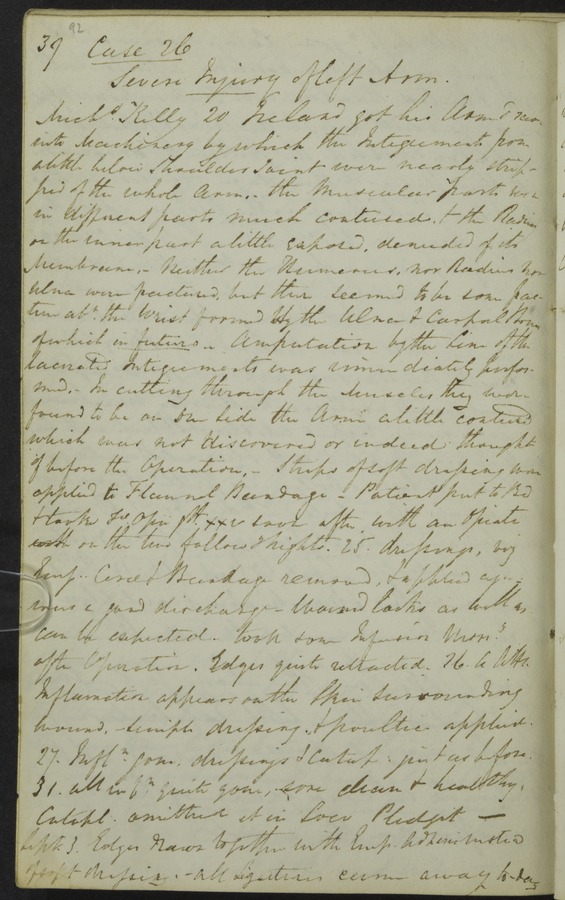 92
39 Case 26
Severe Injury of left Arm.
Mich.l Kelly 20 Ireland got his Arm
into Machinery by which the Integuments from
a little below Shoulder Joint were nearly strip-
ped of the whole Arm. the Muscular parts were
in different parts much contused. & the Radius
on the inner part a little exposed, denuded of its
Membrane. Neither the Humerus, nor Radius nor
Ulna were fractured, but there seemed to be some frac
ture at the Wrist formed by the Ulna & Carpal Bones
of which in future. Amputation by the line of the
lacerated Integuments was immediately perfor
med. In cutting through the Muscles they were
found to be on one side the Arm a little contused
which was not discovered or indeed thought
of before the Operation. Strips of soft dressing were
applied & Flannel Bandage - Patient put to Bed
& took Opii xxv soon after with an Opiate
on the two following nights. 25. dressings, viz
Emp. Cerec & Bandage removed, & applied
a good discharge - Wound looks as well as
can be expected. took some Infusion
after Operation. Edges quite retracted. 26. a little
Inflammation appears on the Skin surrounding
wound. simple dressing & poultice applied.
27. Infl.n gone. dressings & Catap. just as before.
31. all infl.n quite gone, sore clean & healthy.
Catapl. omitted et in Loco Pledgit —
Sept. 3. Edges drawn together with Emp. Adhesiv
& soft dressing. - all ligatures came away to-day